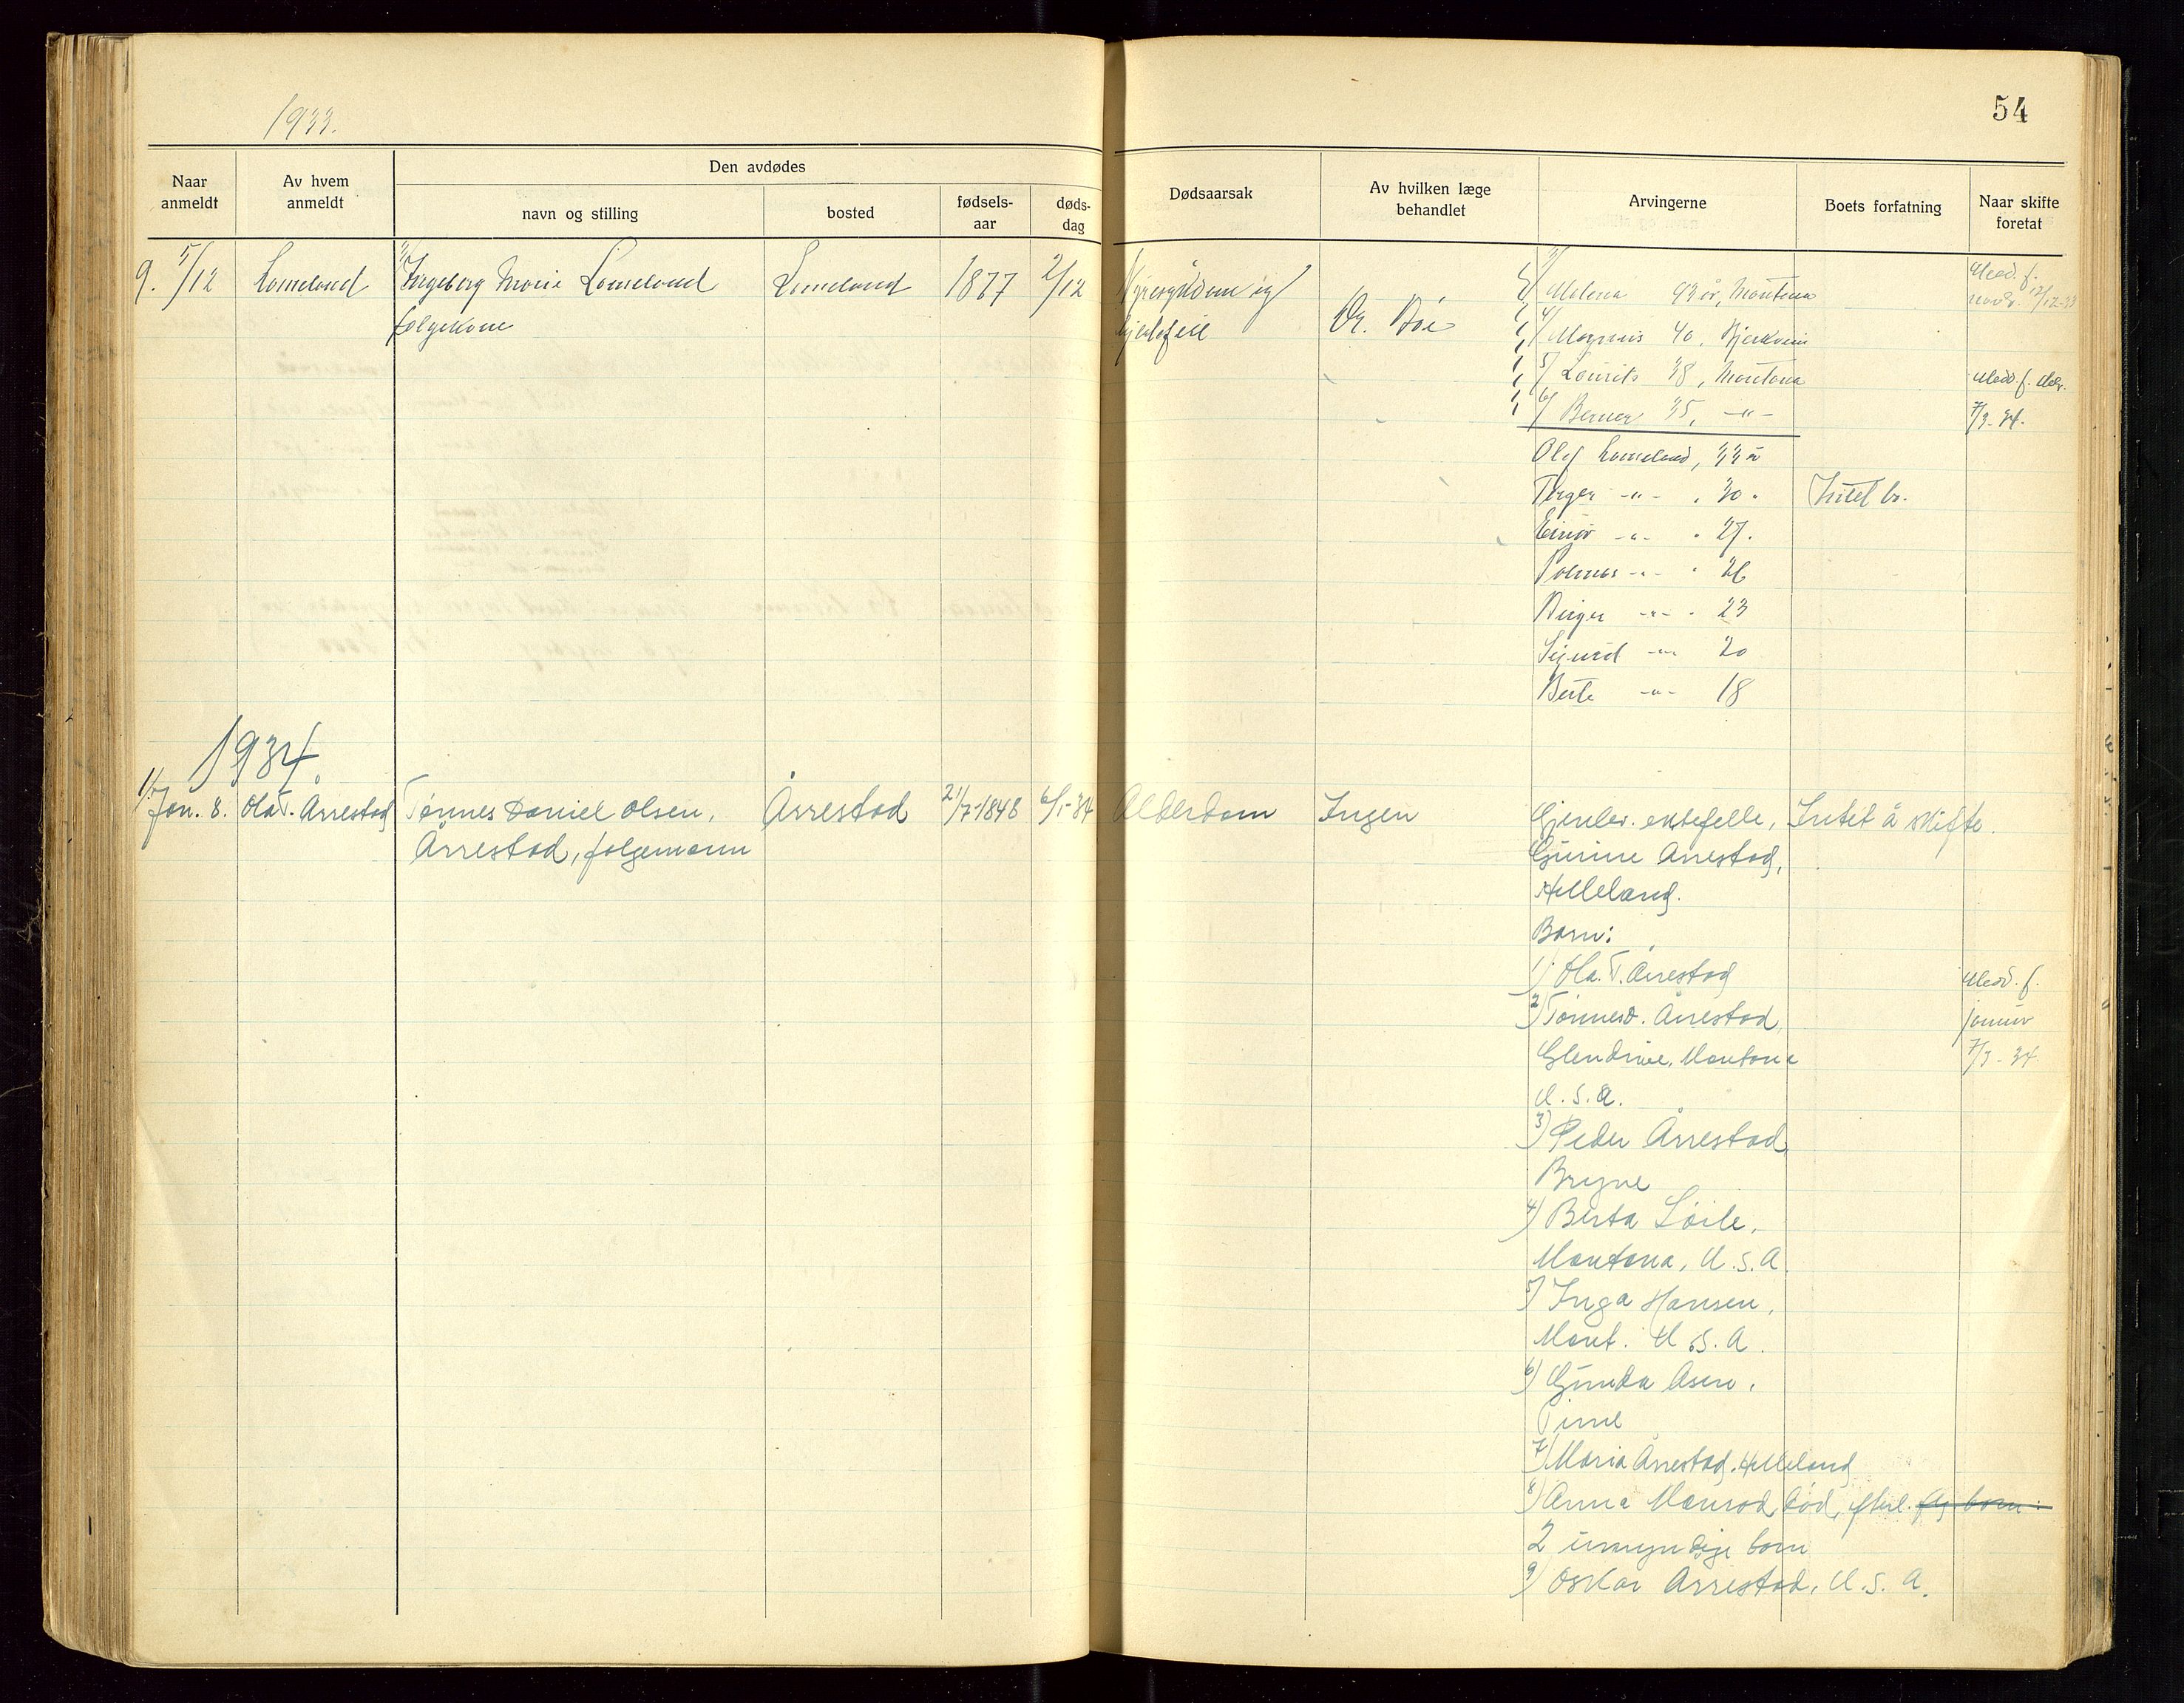 1933.
54
Naar anmeldt
Av hvem anmeldt
Den avdødes
navn og stilling
bosted
fødsels-aar
døds-dag
Dødsaarsak
Av hvilken læge behandlet
Arvingerne
Boets forfatning
Naar skifte foretat
9. 5/12 Lomeland Ingeborg Marie Lomeland Lomeland 1877 2/12 Nyresykdom og
folgekone
hjertefeil Dr. Böe
3/ Malena 43 år, Montana
4/ Magnus 40, Bjerkreim
5/ Lourits 38, Montana
6/ Berner 35, -"-
Medd. f.
novb. 12/12-33
Medd. f. des.
7/3-34.
Olaf Lomeland, 33 år
Torger -"- . 30 .
Intet bo.
Einar -"- . 27.
Rasmus -"- . 26
Birger -"- . 23
Sigurd -"- 20
Berte -"- 18
1934.
1/ Jan. 8. Ola T. Årrestad Tönnes Daniel Olsen, Årrestad 21/7-1848 6/1-34 Alderdom Ingen
Årrestad, folgemann
Gjenlev. ektefelle, Intet å skifte.
Gurine Årrestad,
Helleland.
Barn:
1) Ola. T. Årrestad
2) Tönnes D. Årrestad,
Glendive, Montana
U.S.A.
3) Peder Årrestad,
Bryne
4) Berta Löile,
Montana, U.S.A.
5) Inga Hansen,
Mont. U.S.A.
6) Gunda Åsen,
Time
7) Maria Årrestad, Helleland
8) Anna Maurod, död, efterl. flg barn:
2 umyndige barn
9) Oskar Årrestad, U.S.A.
Medd. f.
januar
7/3-34.